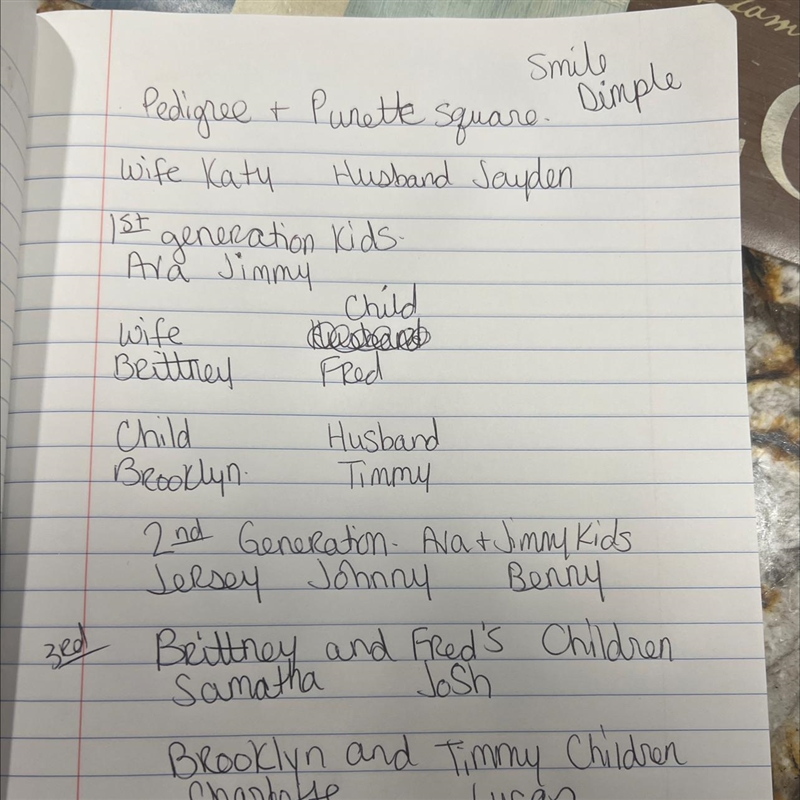 Smile
Dimple
Pedigree + Punette square.
Wife Katy Husband Jayden
1st generation kids.
Ava Jimmy
Child
Wife
Brittney Fred
Child Husband
Brooklyn. Timmy
2nd Generation. Ava + Jimmy Kids
Jersey Johnny Benny
3rd Brittney and Fred's Children
Samatha Josh
Brooklyn and Timmy Children
Lucas